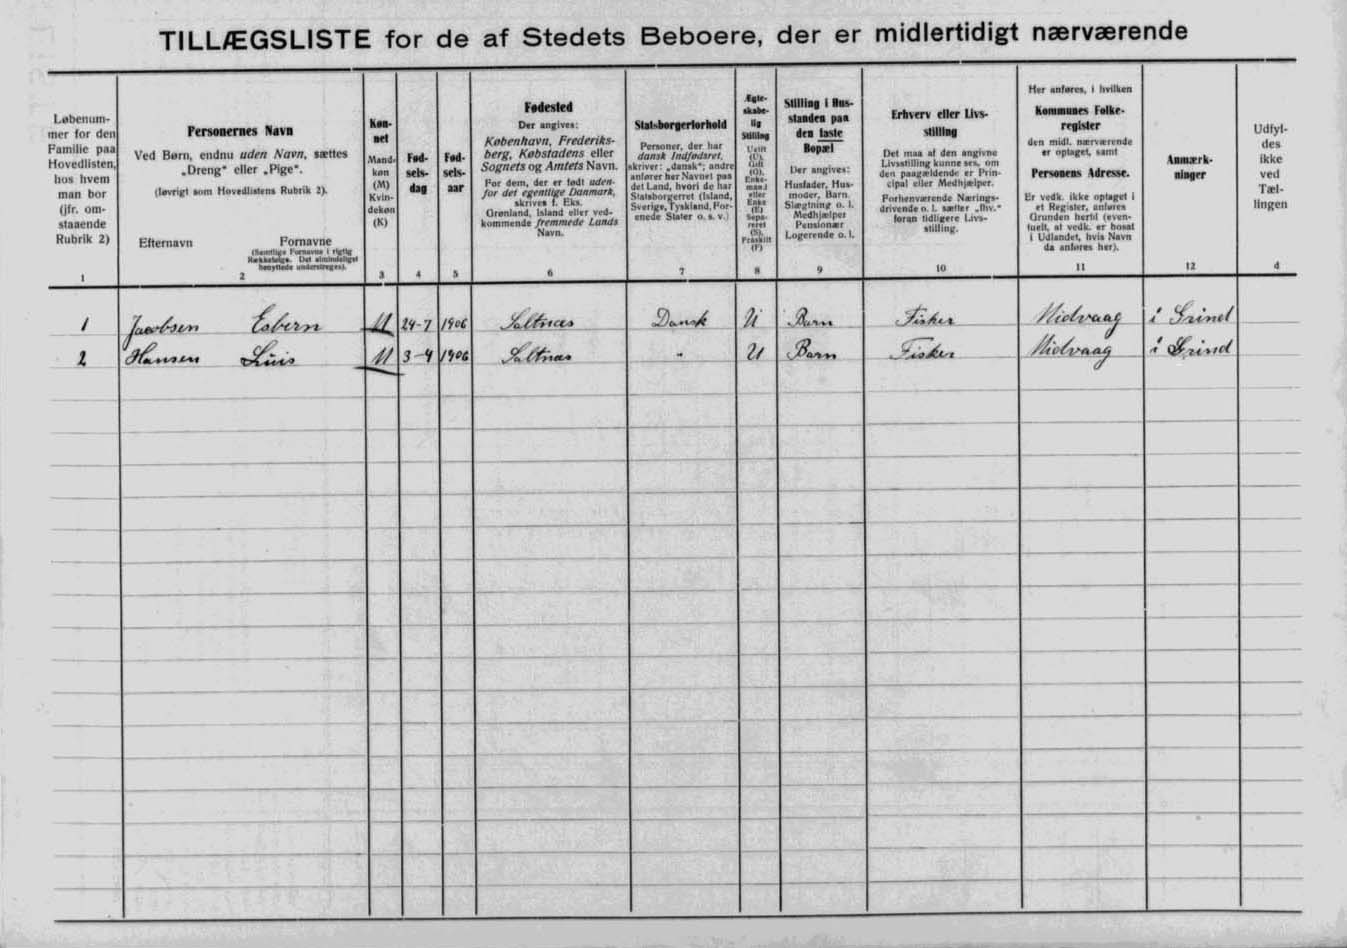 TILLÆGSLISTE for de af Stedets Beboere, der er midlertidigt nærværende
Løbenum-
mer for den
Familie paa
Hovedlisten,
hos hvem
man bor
(jfr. om-
staaende
Rubrik 2)
1
Personernes Navn
Ved Børn, endnu uden Navn, sættes
„Dreng“ eller „Pige“.
(Iøvrigt som Hovedlistens Rubrik 2).
Efternavn Fornavne
(Samtlige Fornavne i rigtig
Rækkefølge. Det almindeligst
benyttede understreges).
2
Køn-
net
Mand-
køn
(M)
Kvin-
dekøn
(K)
3
Fød-
sels-
dag
4
Fød-
sels-
aar
5
Fødested
Der angives:
København, Frederiks-
berg, Købstadens eller
Sognets og Amtets Navn.
For dem, der er født uden-
for det egentlige Danmark,
skrives f. Eks.
Grønland, Island eller ved-
kommende fremmede Lands
Navn.
6
Statsborgerforhold
Personer, der har
dansk Indfødsret,
skriver: „dansk“; andre
anfører her Navnet paa
det Land, hvori de har
Statsborgerret (Island,
Sverige, Tyskland, For-
enede Stater o. s. v.)
7
Ægte-
skabe-
lig
Stilling
Ugift
(U),
Gift
(G),
Enke-
mand
eller
Enke
(E)
Sepa-
reret
(S),
Fraskilt
(F)
8
Stilling i Hus-
standen paa
den faste
Bopæl
Der angives:
Husfader, Hus-
moder, Barn.
Slægtning o. l.
Medhjælper
Pensionær
Logerende o. l.
9
Erhverv eller Livs-
stilling
Det maa af den angivne
Livsstilling kunne ses, om
den paagældende er Prin-
cipal eller Medhjælper.
Forhenværende Nærings-
drivende o. l. sætter „fhv.“
foran tidligere Livs-
stilling.
10
Her anføres, i hvilken
Kommunes Folke-
register
den midl. nærværende
er optaget, samt
Personens Adresse.
Er vedk. ikke optaget i
et Register, anføres
Grunden hertil (even-
tuelt, at vedk. er bosat
i Udlandet, hvis Navn
da anføres her).
11
Anmærk-
ninger
12
Udfyl-
des
ikke
ved
Tæl-
lingen
d
1 Jacobsen Esbern M 24-7 1906 Saltnæs Dansk U Barn Fisker Midvaag i Grind
2 Hansen Luis M 3-4 1906 Saltnæs „ U Barn Fisker Midvaag i Grind